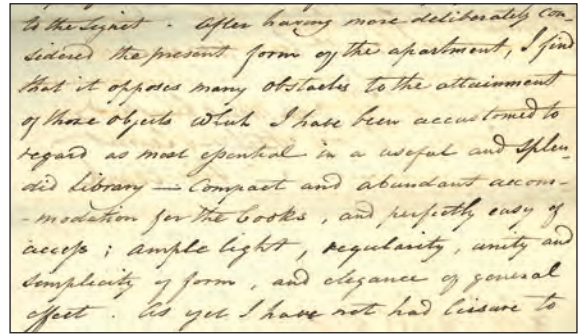 to the Signet. After having more deliberately con-
sidered the present form of the apartment, I find
that it opposes many obstacles to the attainment
of those objects which I have been accustomed to
regard as most essential in a useful and splen-
did library — Compact and abundant accom-
-modation for the books, and perfectly easy of
access; ample light, regularity, unity and
simplicity of form, and elegance of general
effect. As yet I have not had leisure to